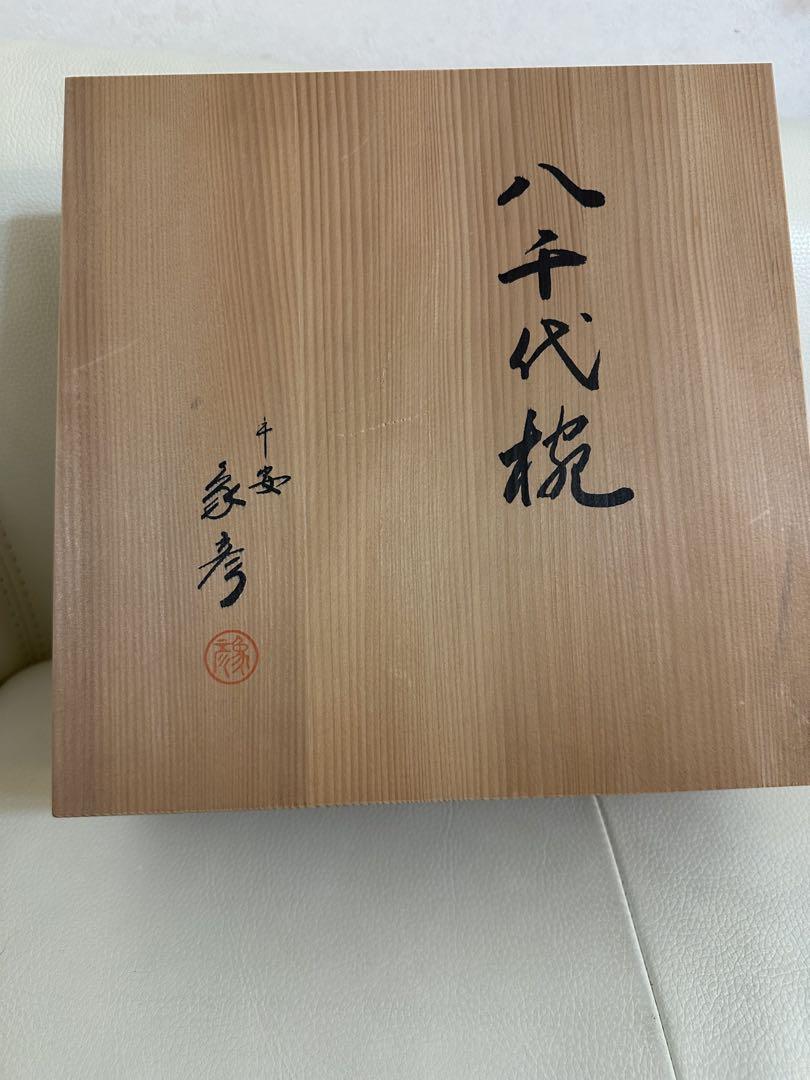 八千代椀
平安
象彦